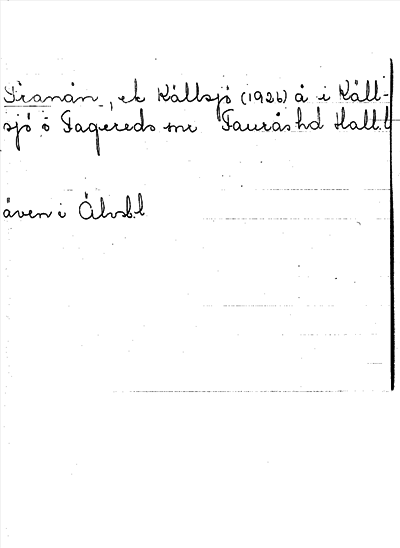 Tranån, ek Källsjö (1926) å i Käll-
sjö o Fagereds snr Fauråshd Hall.l
även i Älvsb.l